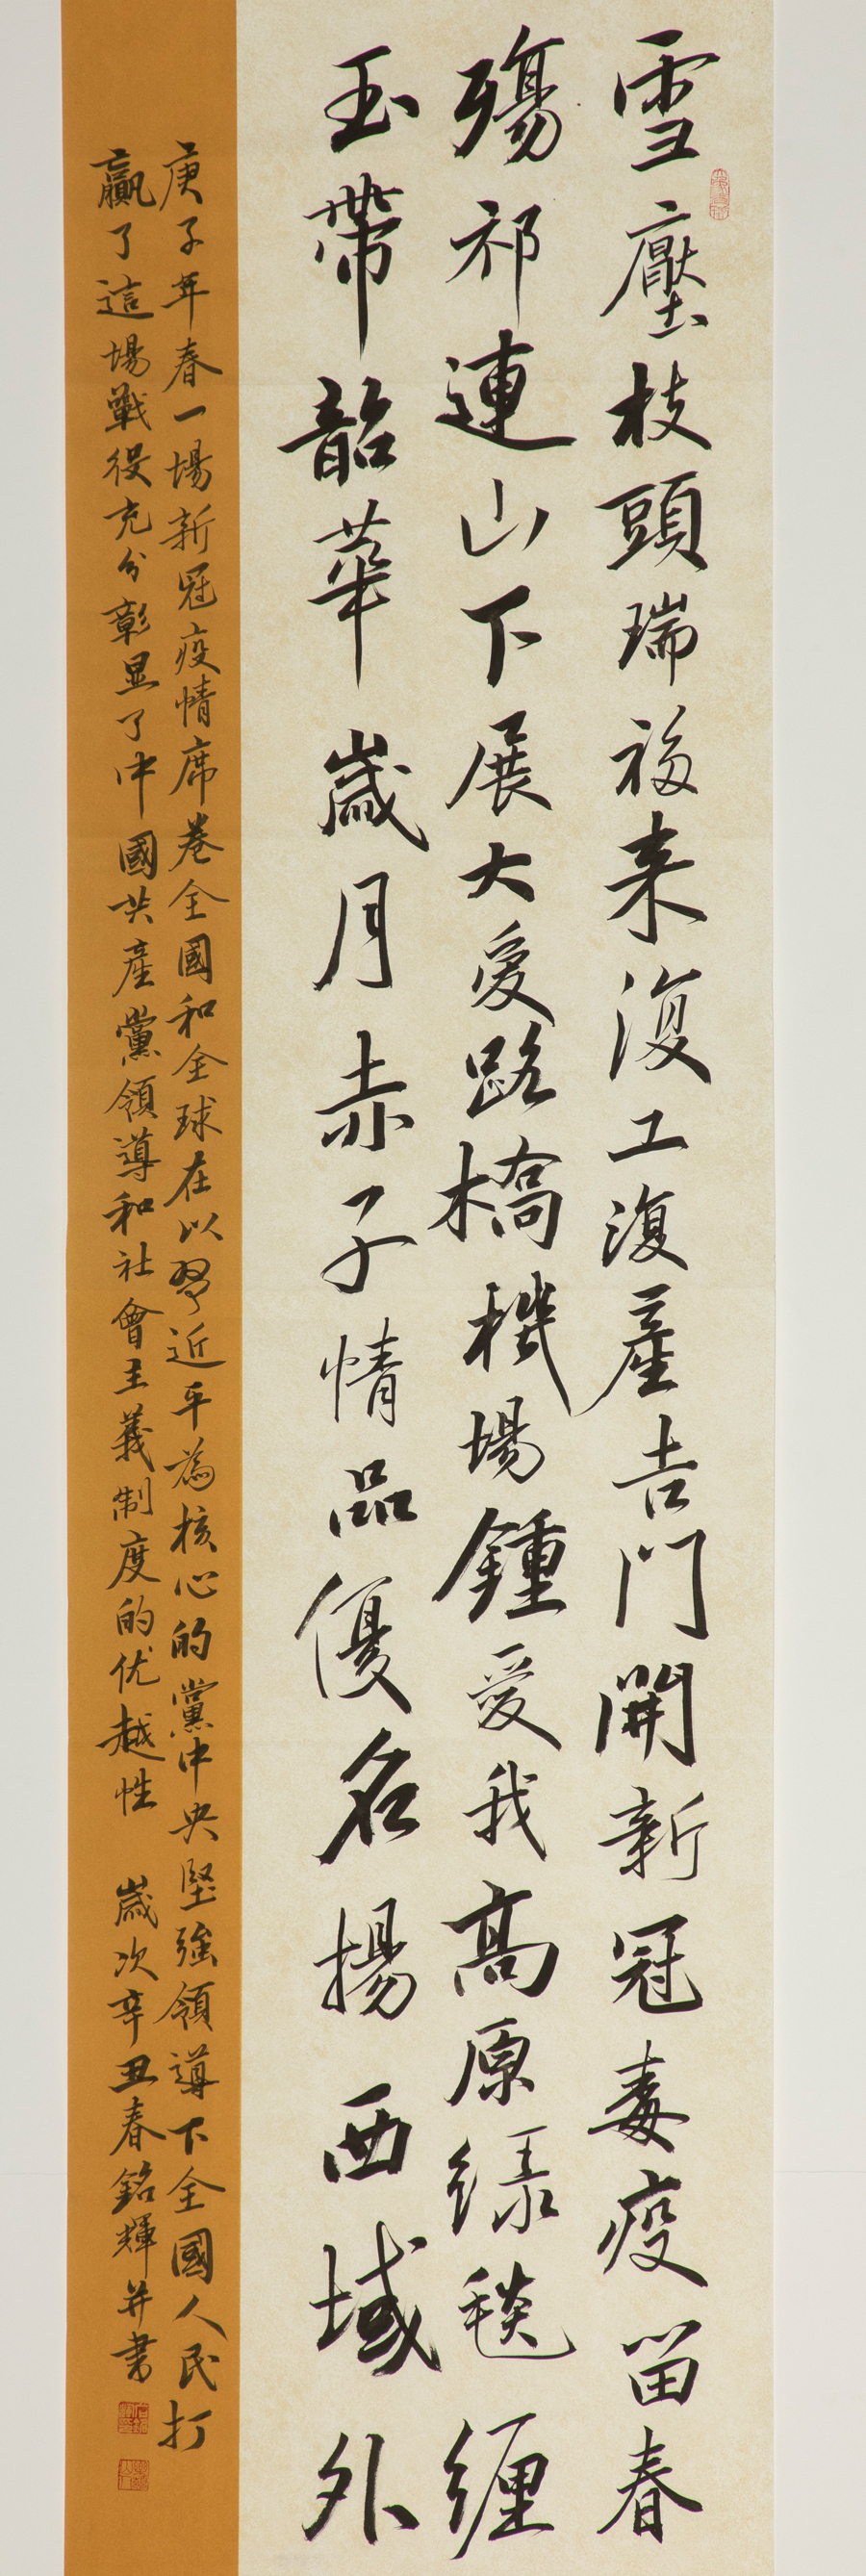 雪壓枝頭瑞福来復工復產吉門開新冠毒疫留春
殤祁連山下展大愛路橋機場鍾愛我高原绿毯纏
玉帶韶華歲月赤子情品優名揚西域外
庚子年春一場新冠疫情席卷全國和全球在以習近平為核心的黨中央堅強領導下全國人民打
贏了這場戰役充分彰显了中國共產黨領導和社會主義制度的优越性 歲次辛丑春銘輝并書